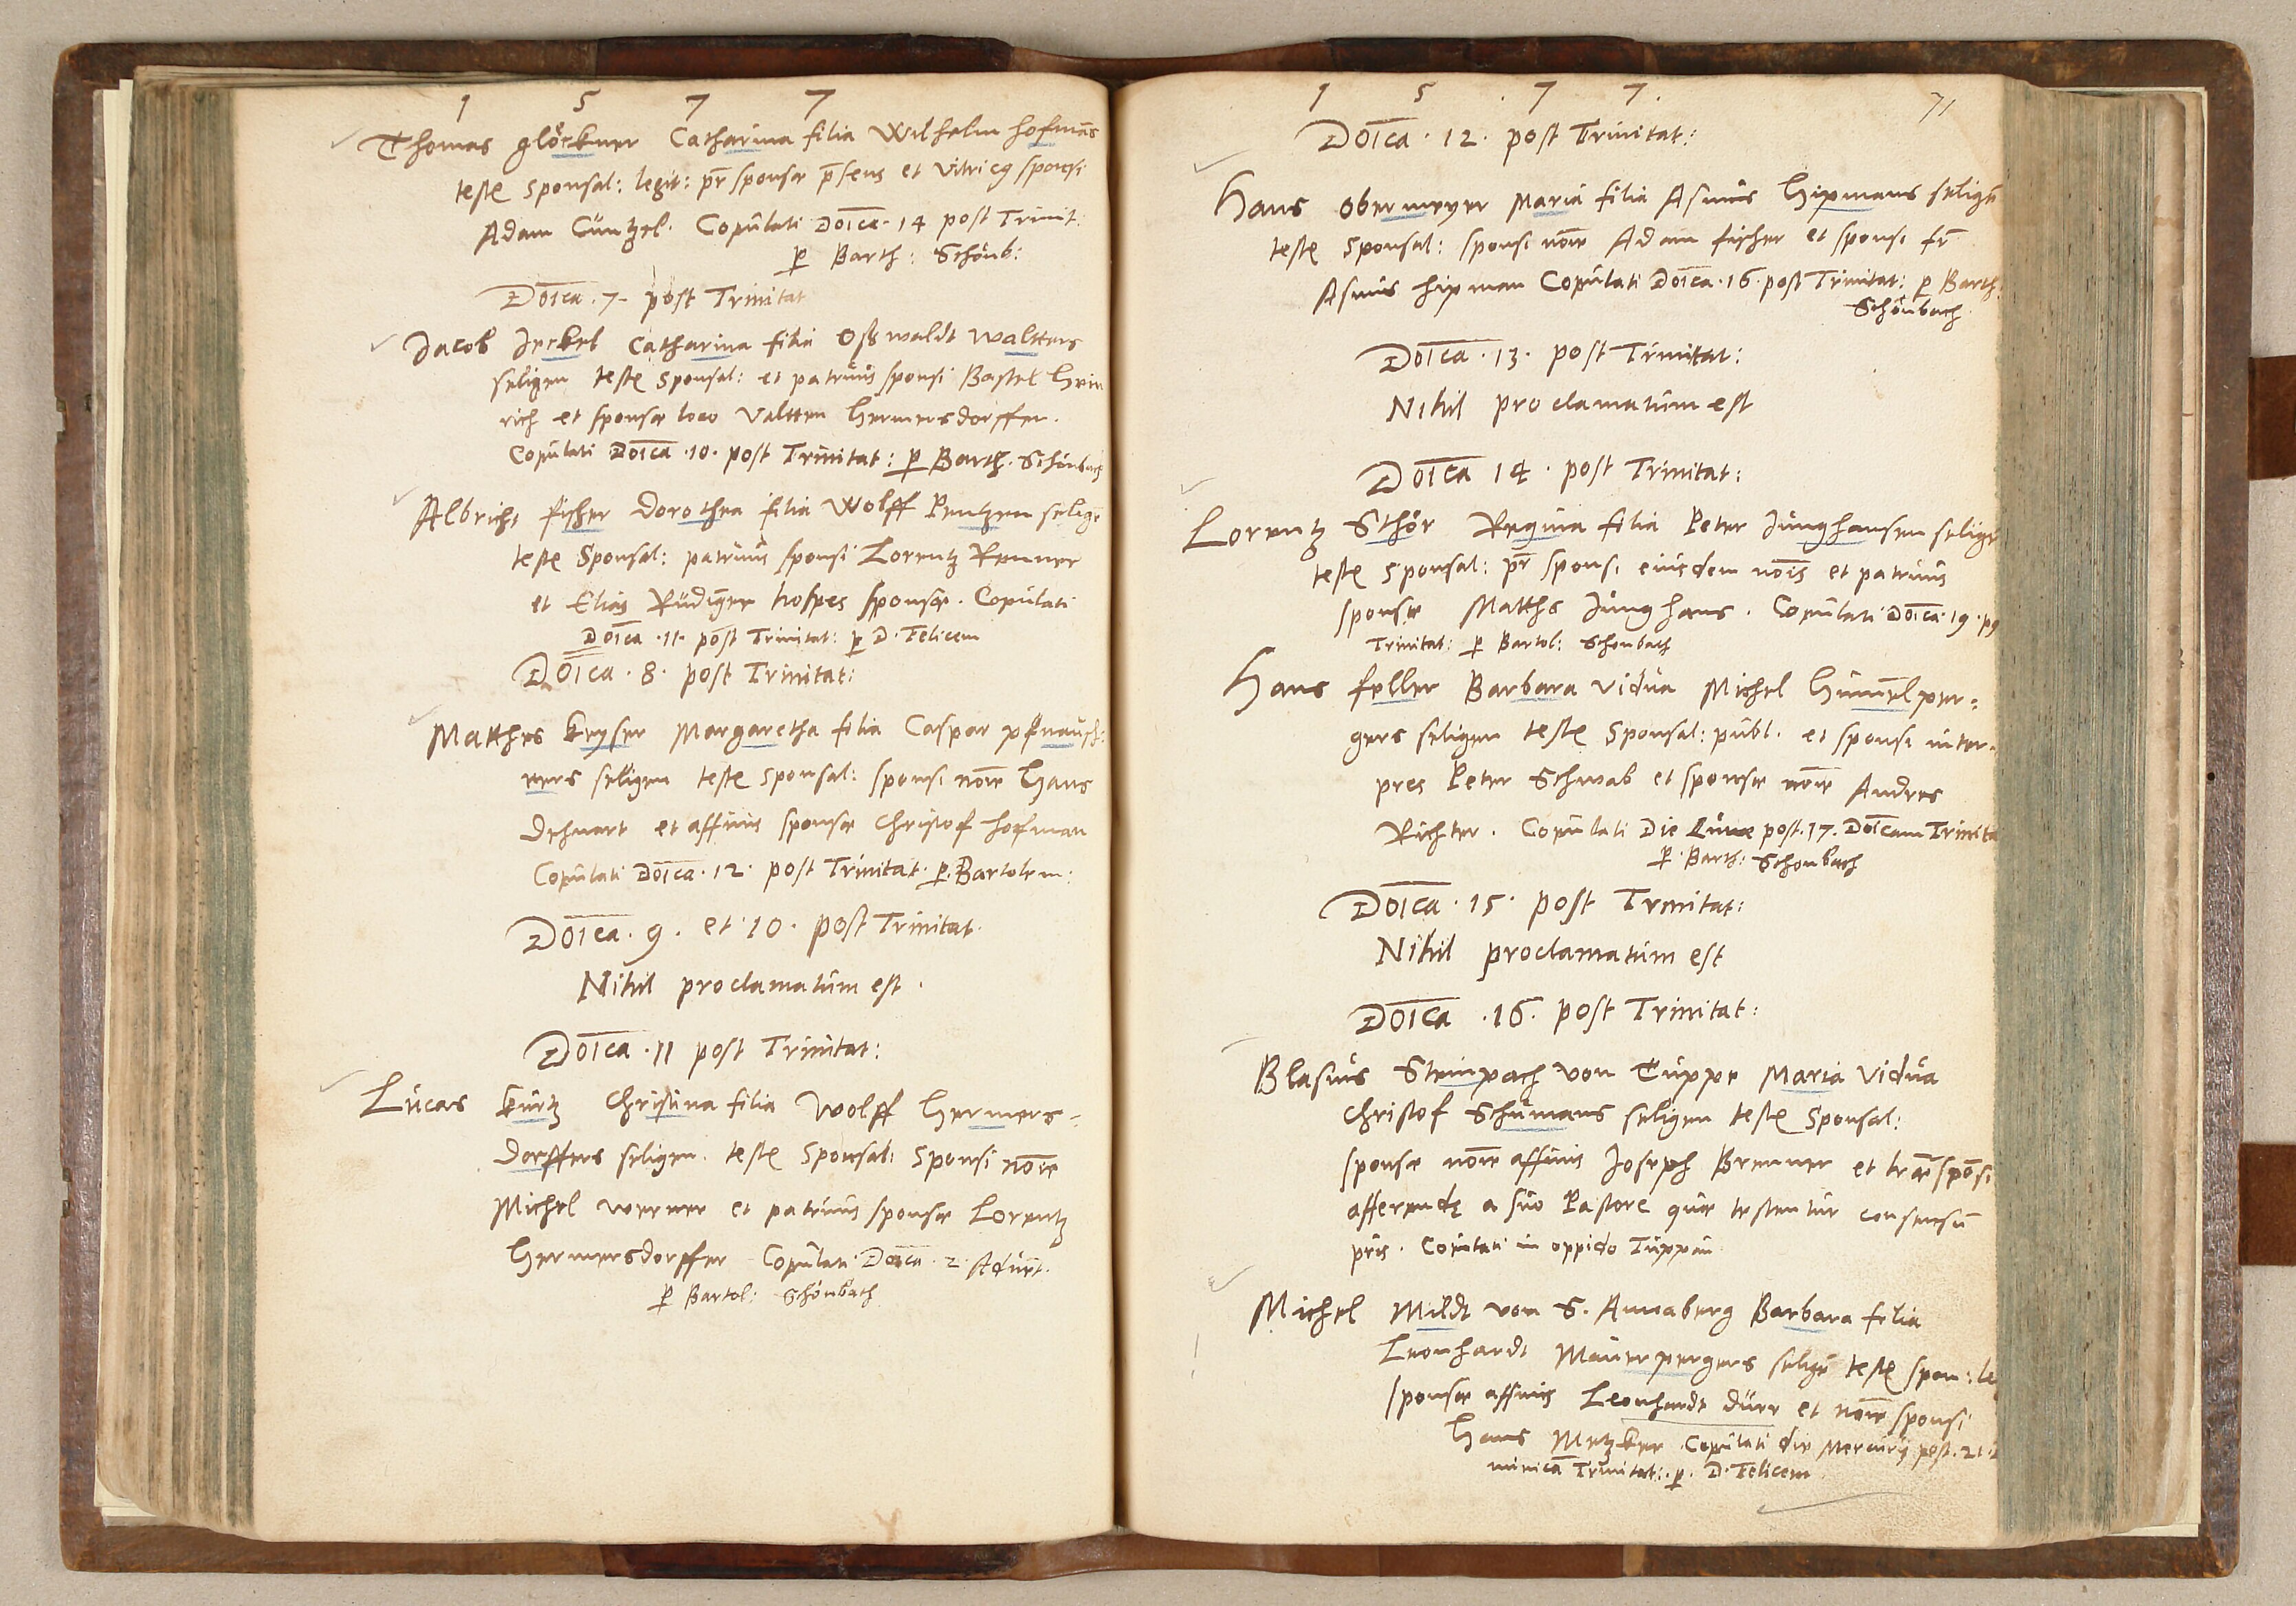 1 5 7 7
Thomas glöckner Catharina filia Wilhelm hofmās
teste sponsal: legit: pr̄ sponsæ p̄sens et vitricq sponsi
Adam Cüntzel. Copulati Doīca 14 post Trinit:
p Barth: Schönb:
Doīca . 7 . post Trinitat
Jacob Jeckel Catharina filia Oßwaldt Waltters
seligen teste sponsal: et patruus sponsi Bastel Hein
rich et sponsæ loco Valtten Hermersdorffer.
Copulati Doīca . 10 . post Trinitat: p Barth. Schönbach
Albricht fischer Dorothea filia Wolff Pentzen selige
teste Sponsal: patruus sponsi Lorentz Renner
et Elias Rüdiger hospes sponsæ. Copulati
Doīca . 11 . post Trinitat: p D. Felicem
Doīca . 8 . post Trinitat:
Matthes keyser Margaretha filia Caspar
ners seligen teste sponsal: sponsi noīe Hans
Dehnart et affinis sponsæ Christof hofman
Copulati Doīca . 12 . post Trinitat. p. Bartolem:
Doīca . 9 . et 10 . post Trinitat.
Nihil proclamatum est .
Doīca . 11 post Trinitat:
Lucas kurtz Christina filia Wolff Hermers=
dorffers seligen. teste Sponsal: Sponsi noīe
Michel werner et patruus sponsæ Lorentz
Hermersdorffer Copulati Doīca . 2 . Aduēt.
p Bartol: Schönbach
1 5 . 7 7 .
71
Doīca . 12 . post Trinitat:
Hans obermeyer Maria filia Asmus Hipmans selige
teste Sponsal: sponsi noīe Adam fischer et sponsi fr̄
Asmus hipman Copulati Doīca . 16 . post Trinitat: p Barth:
Schönbach
Doīca . 13 . post Trinitat:
Nihil proclamatum est
Doīca 14 . post Trinitat:
Lorentz Sthör Regina filia Peter Junghansen selige
teste sponsal: pr̄ sponsi eiusdem noīs et patruus
sponsæ Matths Junghans . Copulati Doīca . 19 . pq
Trinitat: p Bartol: Schonbach
Hans feller Barbara vidua Michel Himmelper=
gers seligen teste Sponsal: publ. et sponsi inter-
pres Peter Schwab et sponsæ noīe Andres
Richter . Copulati Die Lunæ post . 17 . Doīcam Trinita
p . Barth: Schonbach
Doīca . 15 . post Trinitat:
Nihil proclamatum est
Doīca . 16 . post Trinitat:
Blasius Steinpach von Tuppe Maria vidua
Christof Schumans seligen teste Sponsal:
sponsæ noīe affinis Joseph Brenner et lræ spōsi
afferendę a suo Pastore quæ testentur consensū
pris . Copulati in oppido Tuppau
Michel Mildt von S. Annaberg Barbara filia
Leonhardt Maurpergers seligē teste spon: le
sponsæ affinis Leonhardt dürr et noīe sponsi
Hans Metzker Copulati die Mercurij post . 21 .
minicā Trinitat: . p . D. Felicem